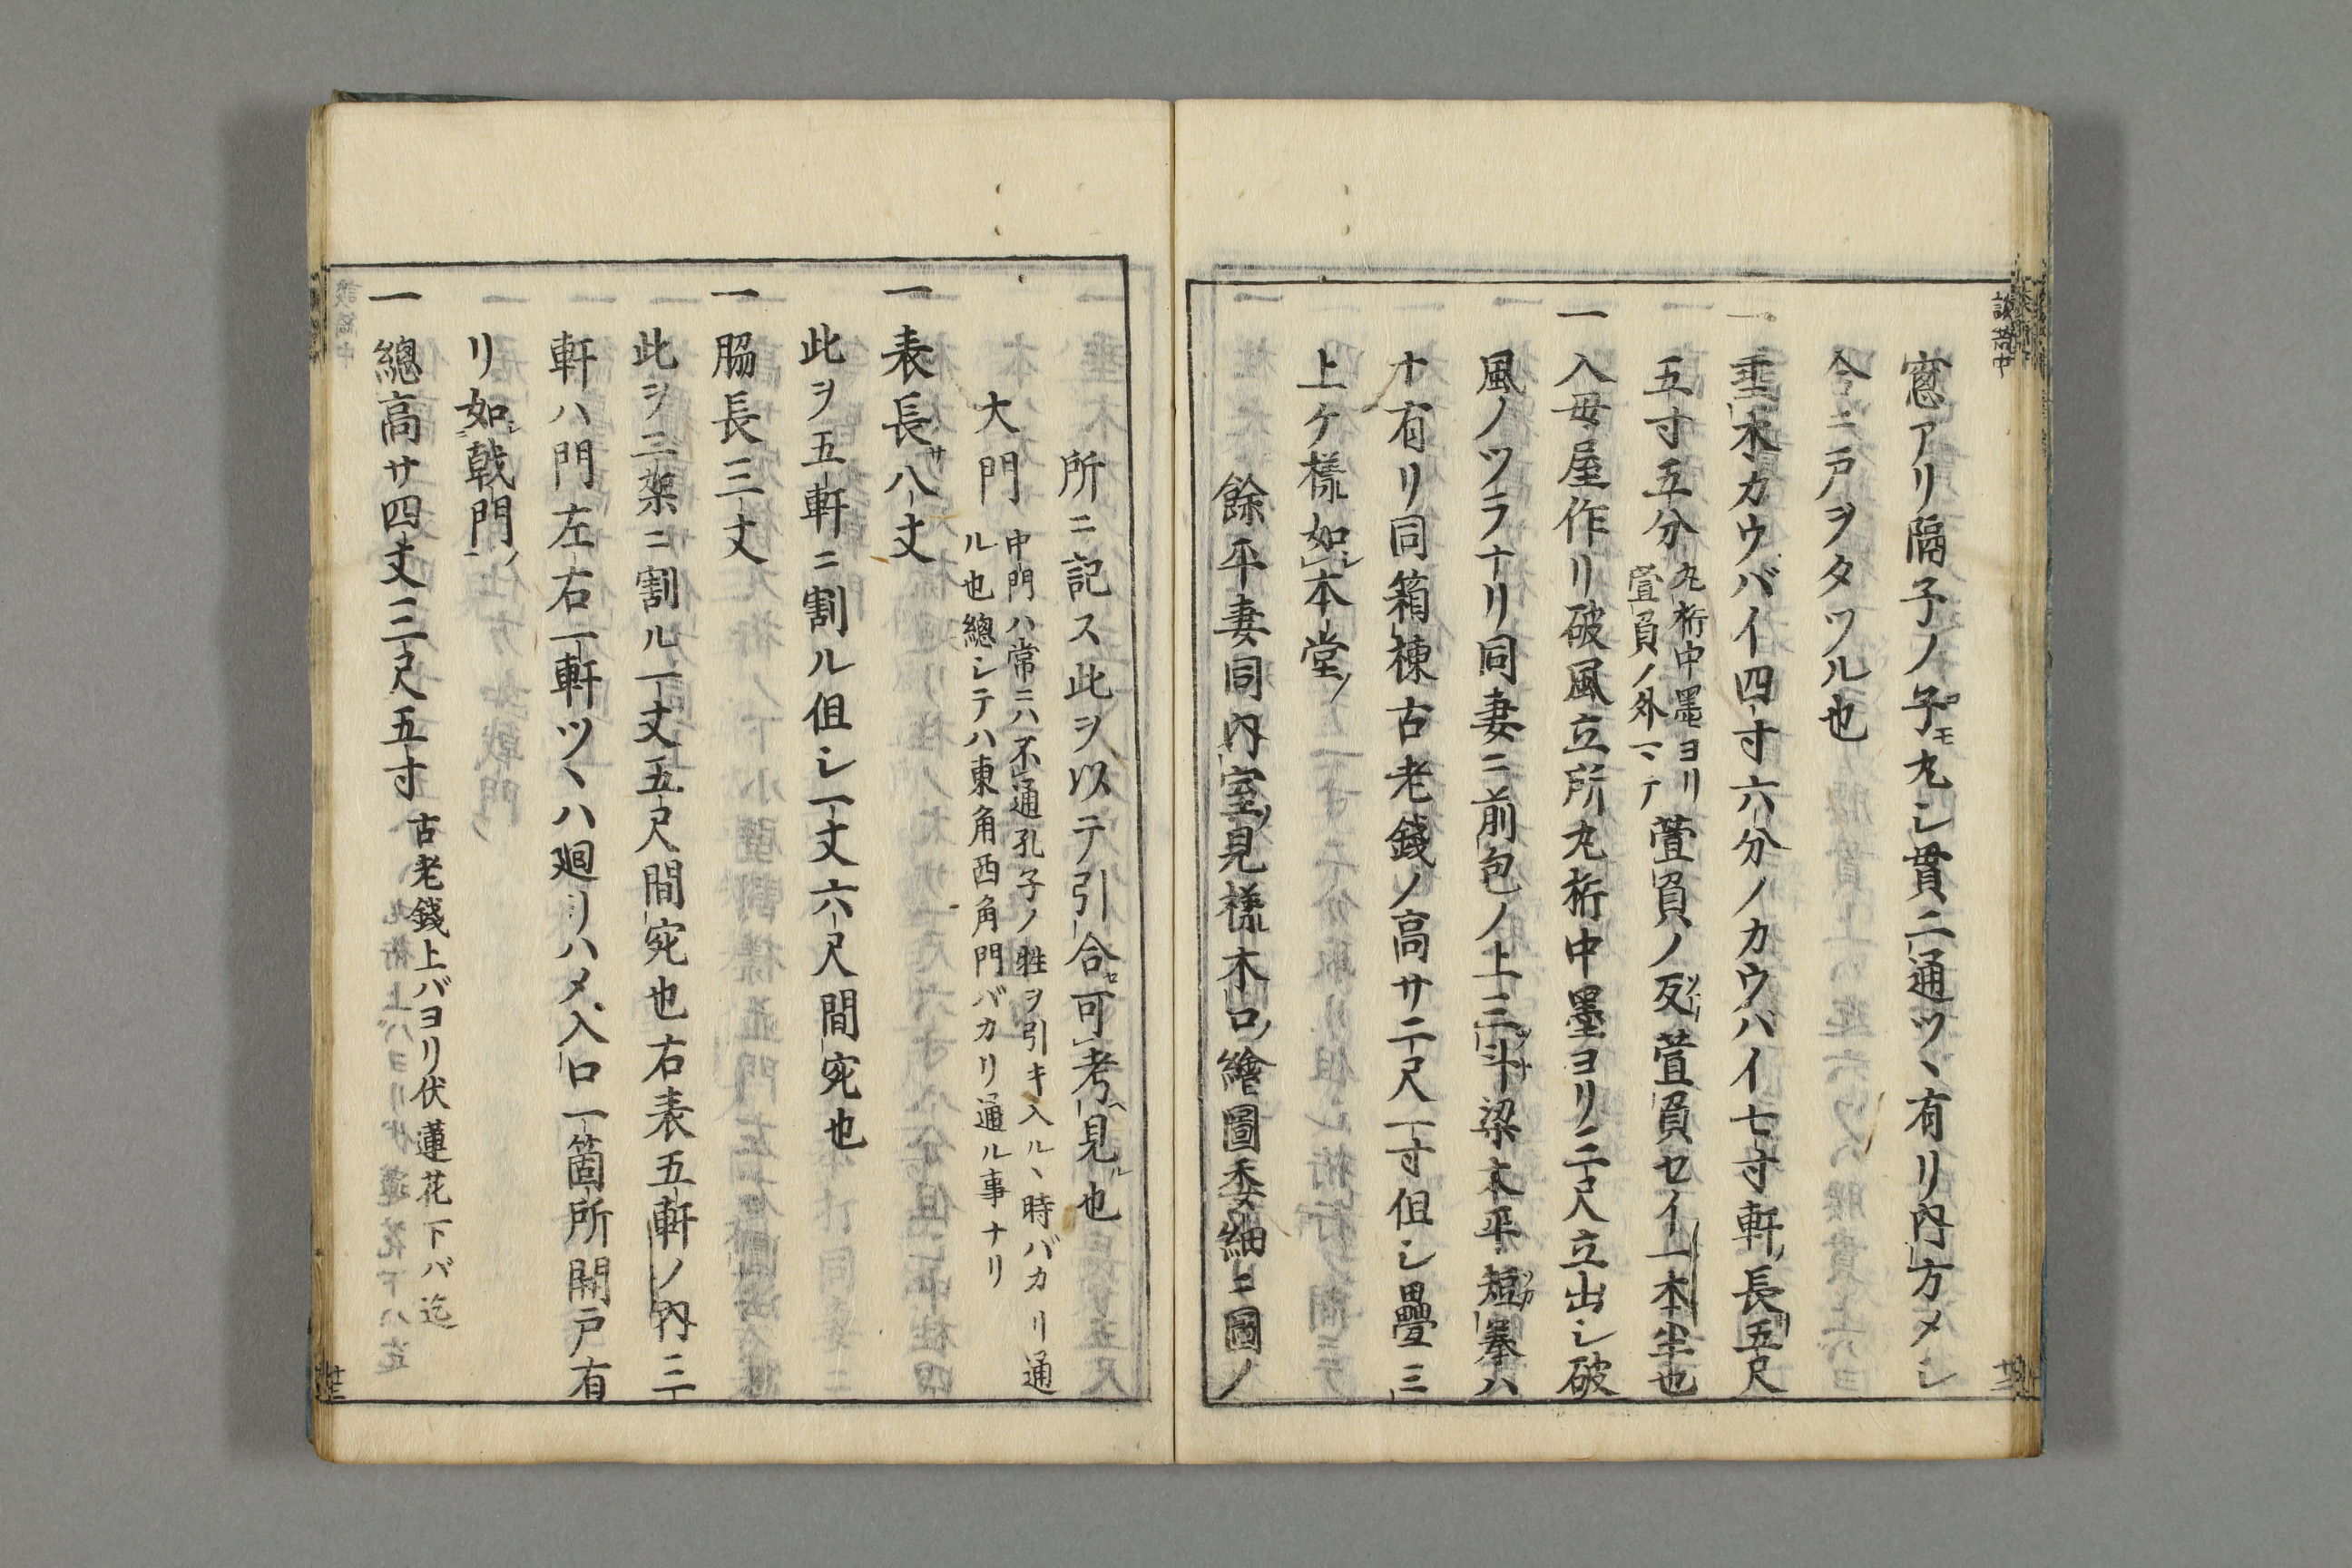 窓アリ隔子ノ子モ丸シ貫二通ツヽ有リ内方メシ
合ニ戸ヲタツル也
一垂木カウバイ四寸六分ノカウバイ七寸軒ノ長五尺
五寸五分丸桁中墨ヨリ萱負ノ外マテ萱負ノ反ソリ萱負セイ一本半也
一入母屋作リ破風立所丸桁中墨ヨリ二尺立出シ破
風ノツラナリ同妻ニ前包ノ上三斗梁太平短ツカ拳ハ
ナ有リ同箱棟古老錢ノ高サ二尺一寸但シ疊三
上ケ樣如シ本堂ノ
餘平妻同内室ノ見樣木口ノ繪圖委細ニ圖ノ
所ニ記ス此ヲ以テ引合セ可考ヘ見ル也
大門
中門ハ常ニハ不通孔子ノ牲ヲ引キ入ルヽ時バカリ通
ル也總シテハ東角西角門バカリ通ル事ナリ
一表長サ八丈
此ヲ五軒ニ割ル但シ一丈六尺間宛也
一脇長三丈
此ヲ二架ニ割ル一丈五尺間宛也右表五軒ノ内三
軒ハ門左右一軒ツヽハ廻リハメ入口一箇所開戸有
リ如シ戟門ノ
一總高サ四丈三尺五寸古老錢上バヨリ伏蓮花下バ迄